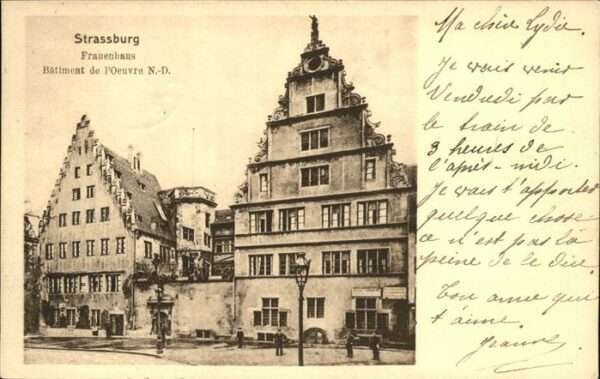 Strassburg
Frauenhaus
Bâtiment de l'Oeuvre N.-D.
Ma chère Lydie.
Je vais venir
Vendredi par
le train de
3 heures de
l'après-midi.
Je vais t'apporter
quelque chose
ce n'est pas la
peine de le dire.
Ton amie qui
t'aime.
Jeanne